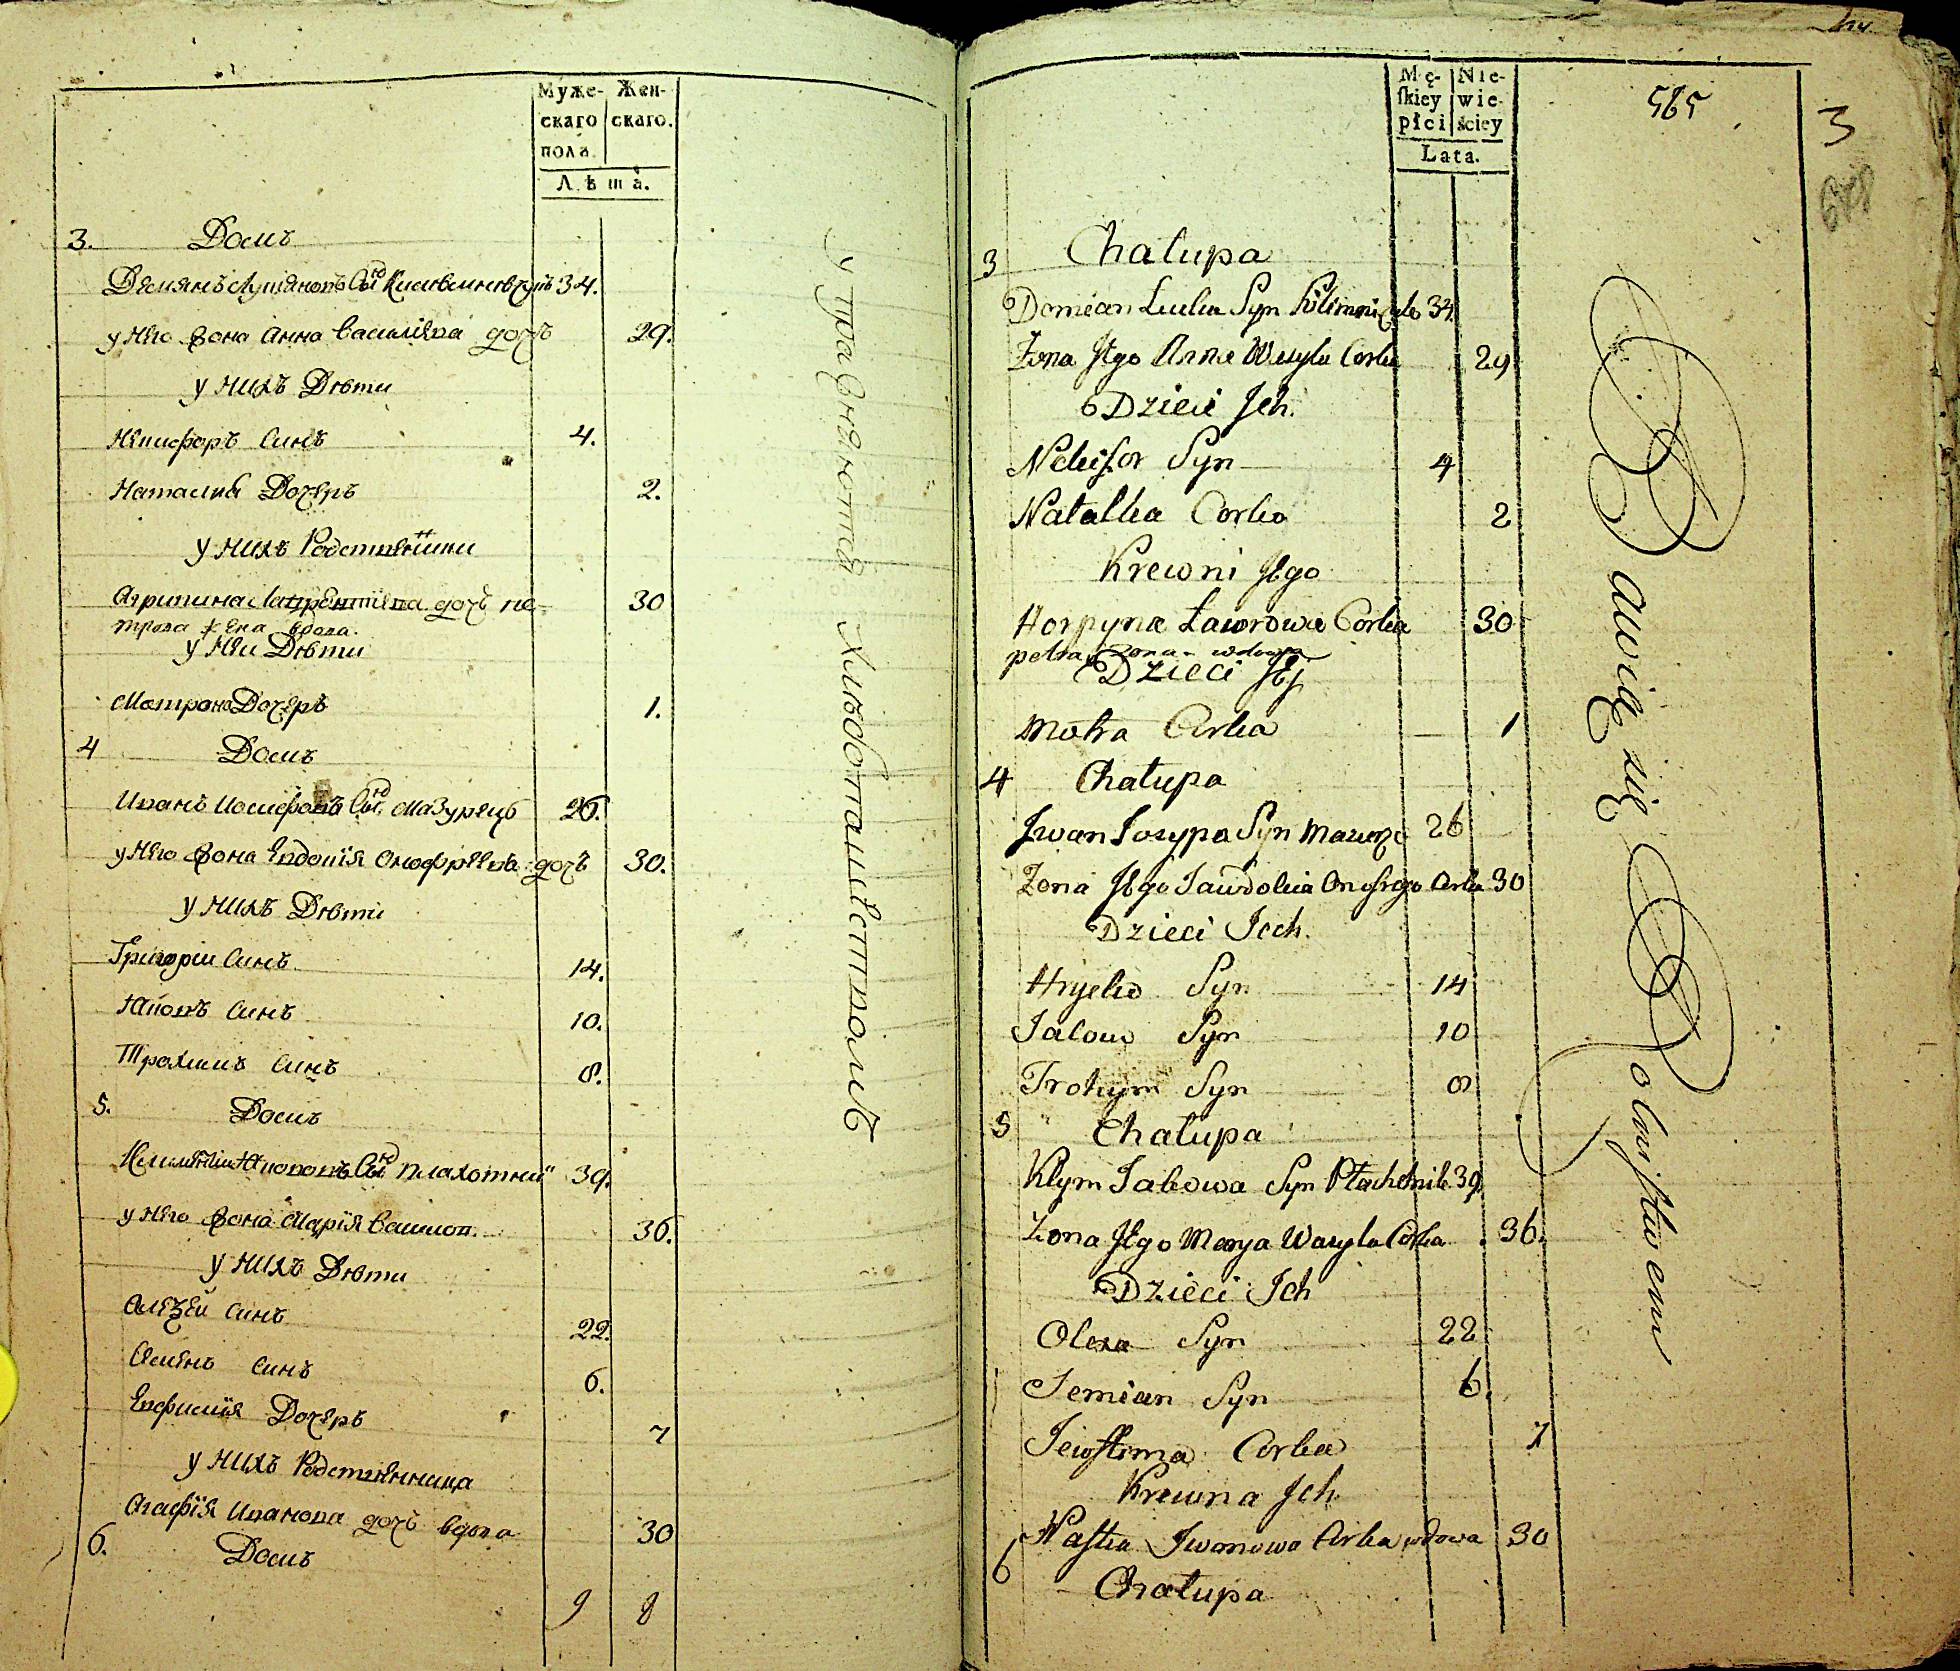 Муже-
скаго
полъ.
Жен-
скаго.
Лѣта.
3. Домъ
Демянъ Лукяновъ Сынъ 34.
у Него Жона Анна Василіева дочъ 29.
у Нихъ Дѣти
Никифоръ Синъ 4.
Наталия Дочеръ 2.
у Нихъ Родственники
Агрипина Лаврентиева дочъ Пе- 30
трова жена вдова.
у Неи Дѣти
Матрона Дочеръ 1.
4 Домъ
Иванъ Иосифовъ Сынъ Мазурецъ 26.
у Него Жона Евдокія Онофріева дочъ 30.
у Нихъ Дѣти
Григорій Синъ 14.
Яковъ Синъ 10.
Трохимъ Синъ 8.
5. Домъ
Климентій Якововъ Сынъ Плахотний 39.
у Него Жона Марія Васильев. 36.
у Нихъ Дѣти
Алеѯей Синъ 22.
Семенъ Синъ 6.
Евфимія Дочеръ 7
у Нихъ Родственница
Агафія Иванова дочъ вдова 30
6. Домъ
9 8
у пражняются Хлѣбопашествомъ
Mę-
skiey
płci
Nie-
wie-
ściey
Lata.
595
3
3 Chałupa
Domian Luka Syn 34
Żona Jego Anna Wasyla Corka 29
Dzieci Jch.
Nekifor Syn 4
Natalka Corka 2
Krewni Jego
Horpyna Ławrowa Corka 30
petra zona wdowa
Dzieci Jey
Motra Corka 1
4 Chałupa
Jwan Josypa Syn Mazurec 26
Żona Jego Jawdokia Onofrego Corka 30
Dzieci Jch.
Hryćko Syn 14
Jakow Syn 10
Trohym Syn 8
5 Chałupa
Kłym Jakowa Syn Płachotnik 39
Żona Jego Marya Wasyla Corka 36.
Dzieci Jch
Olexa Syn 22
Semian Syn 6.
Jewfima Corka 7
Krewna Jch
Nastia Jwanowa Corka wdowa 30
6 Chałupa
Bawią się Rolnistwem